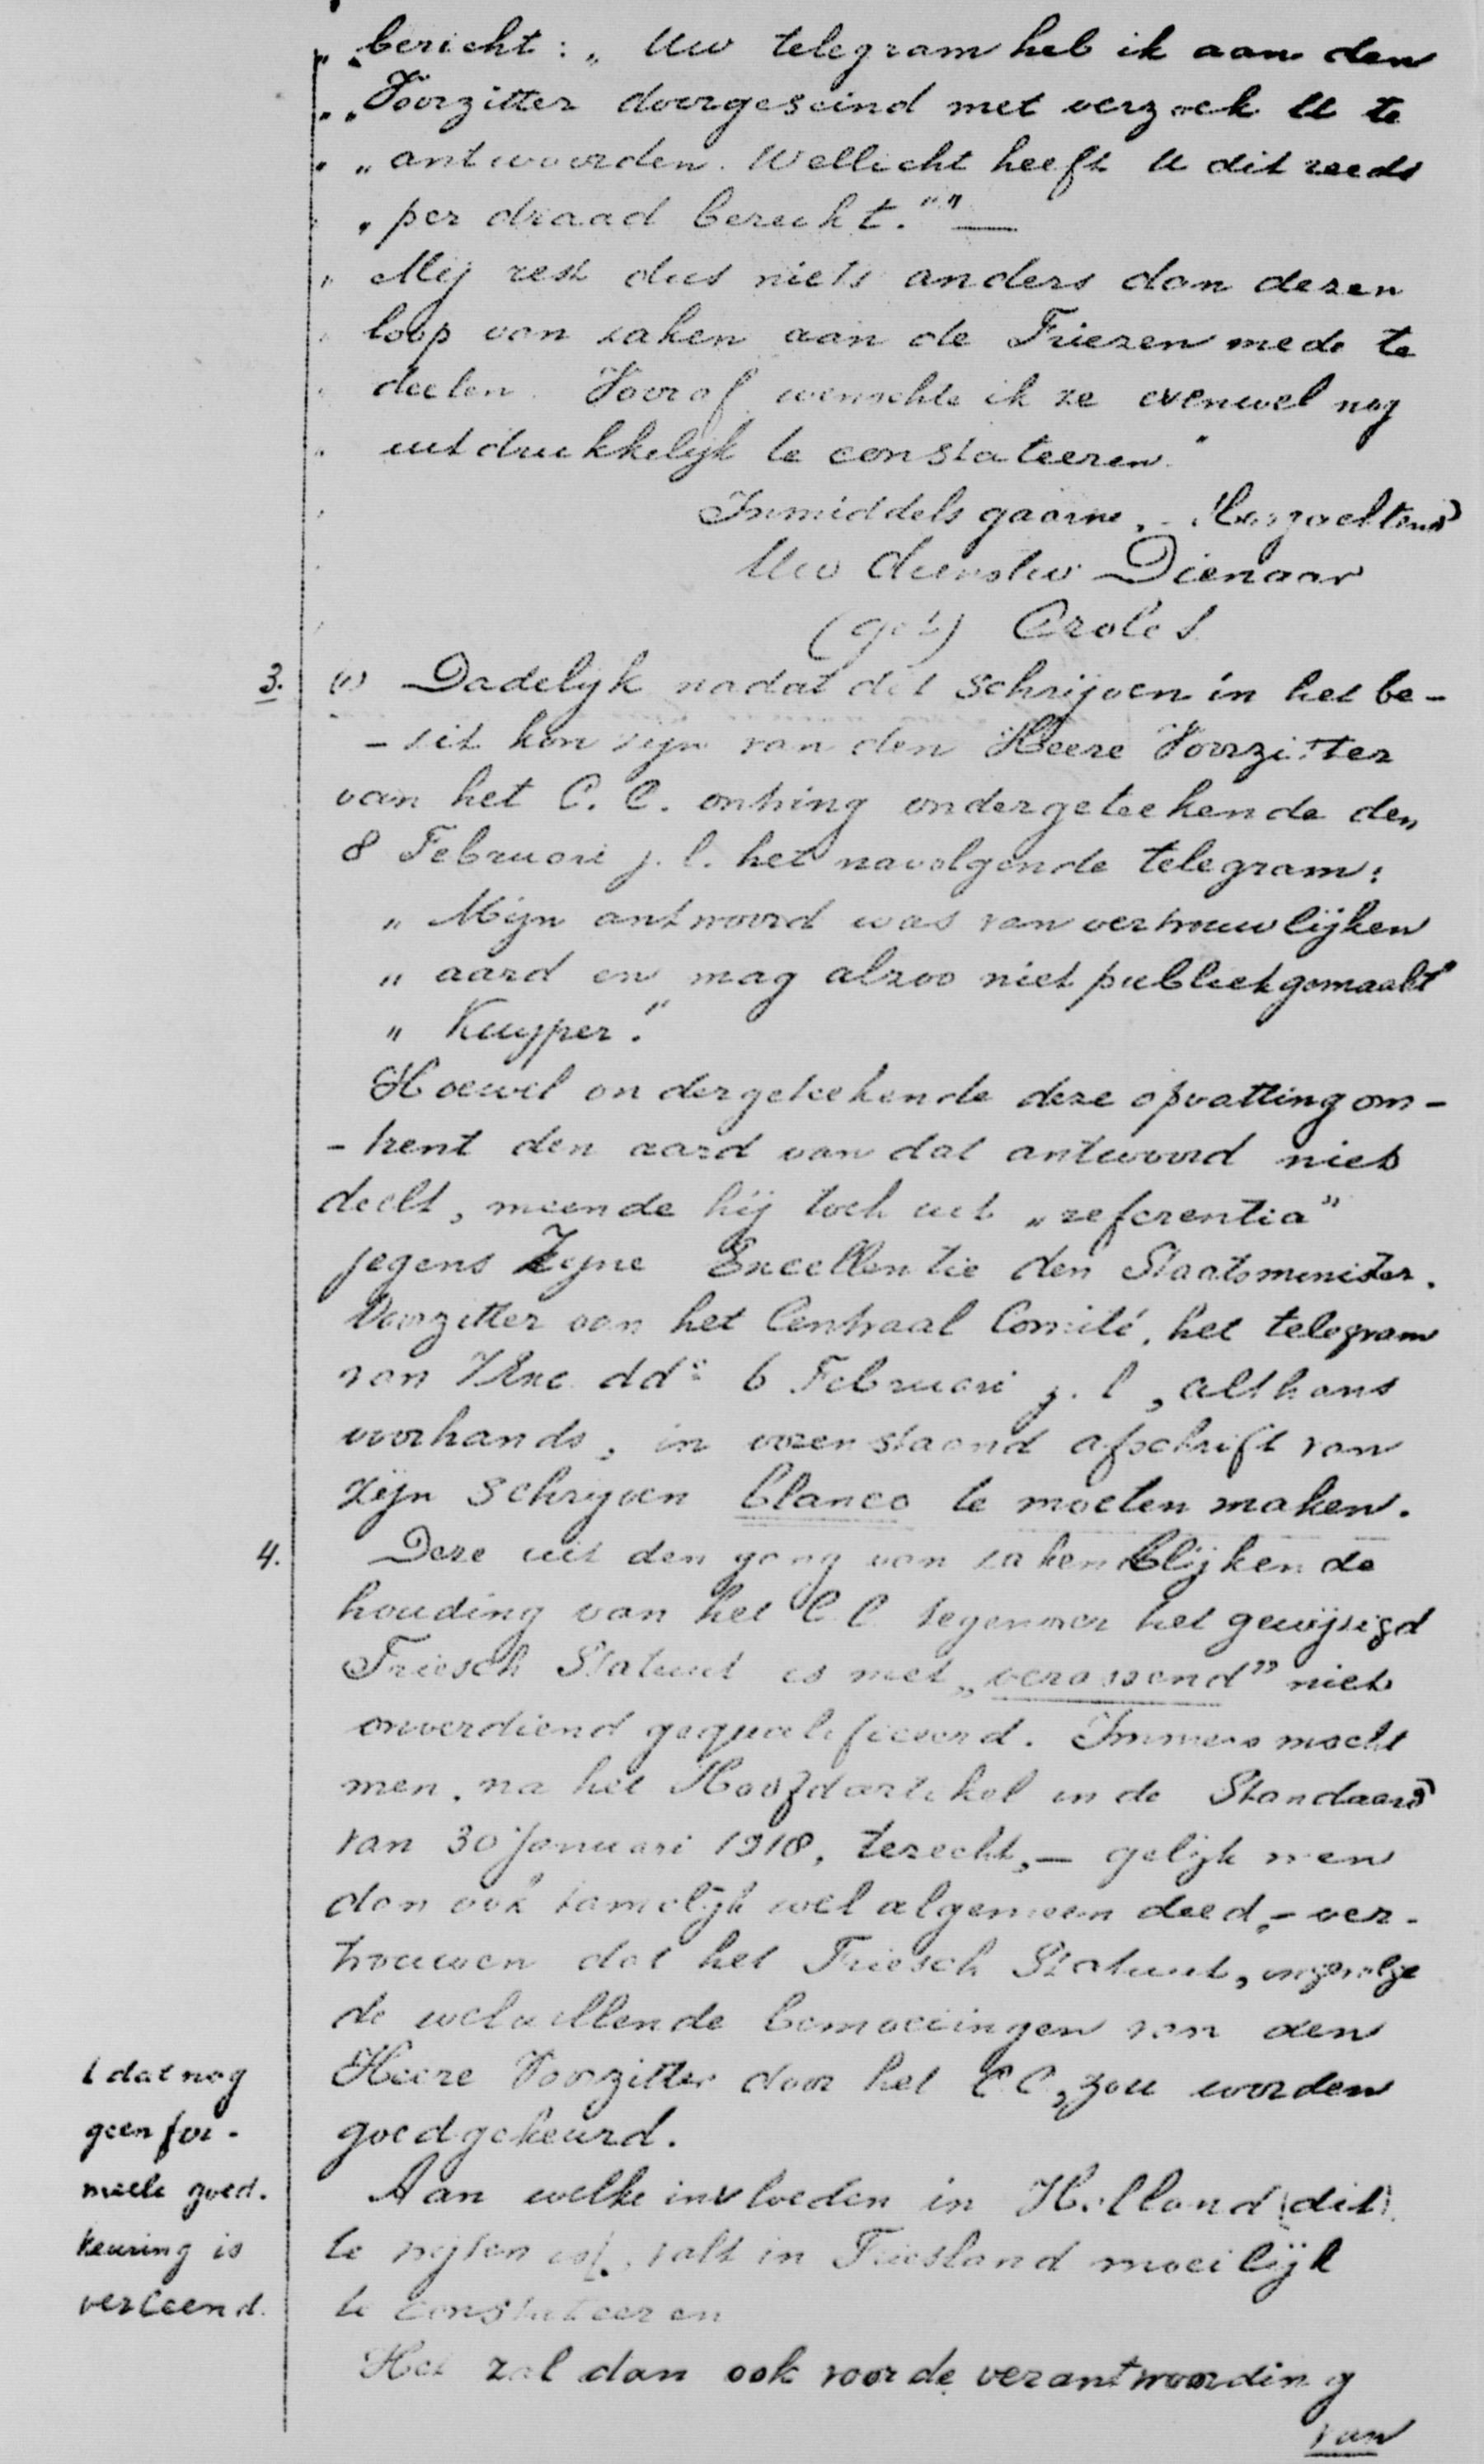 „ „bericht: „Uw telegram heb ik aan den
„ „Voorzitter doorgeseind met verzoek U te
„ „antwoorden. Wellicht heeft U dit reeds
„ „per draad bereikt.““ —
„ Mij rest dus niets anders dan dezen
„ loop van zaken aan de Friezen mede te
„ deelen. Vooraf wenschte ik ze evenwel nog
„ uitdrukkelijk te constateeren.“
Inmiddels gaarne, - Hoogachtend
Uw dienstw Dienaar
(get) Croles
3. (1) Dadelijk nadat dit schrijven in het be-
-zit kon zijn van den Heere Voorzitter
van het C. C. ontving ondergeteekende den
8 Februari j.l. het navolgende telegram:
„ Mijn antwoord was van vertrouwlijken
„ aard en mag alzoo niet publiek gemaakt
„ Kuyper."
Hoewel ondergeteekende deze opvatting om-
-trent den aard van dat antwoord niet
deelt, meende hij toch uit „referentia”
jegens Zijne Excellentie den Staatsminister.
Voorzitter van het Centraal Comité, het telegram
van ZExc. dd° 6 Februari j.l, althans
voorhands, in vorenstaand afschrift van
zijn schrijven blanco te moeten maken.
4. Deze uit den gang van zaken blijkende
houding van het C.C. tegenover het gewijzigd
Friesch Statuut is met „verrassend” niet
onverdiend gequalificeerd. Immers mocht
men, na het Hoofdartikel in de Standaard
van 30 Januari 1918, terecht, — gelijk men
dan ook tamelijk wel algemeen deed, - ver-
trouwen dat het Friesch Statuut, ingevolge
de welwillende bemoeiingen van den
Heere Voorzitter door het C.C. zou worden
goedgekeurd.
Aan welke invloeden in Holland (dit)
te wijten is, valt in Friesland moeilijk
te constateeren
( dat nog
geen for-
meele goed.
keuring is
verleend.
Het zal dan ook voor de verantwoording
van